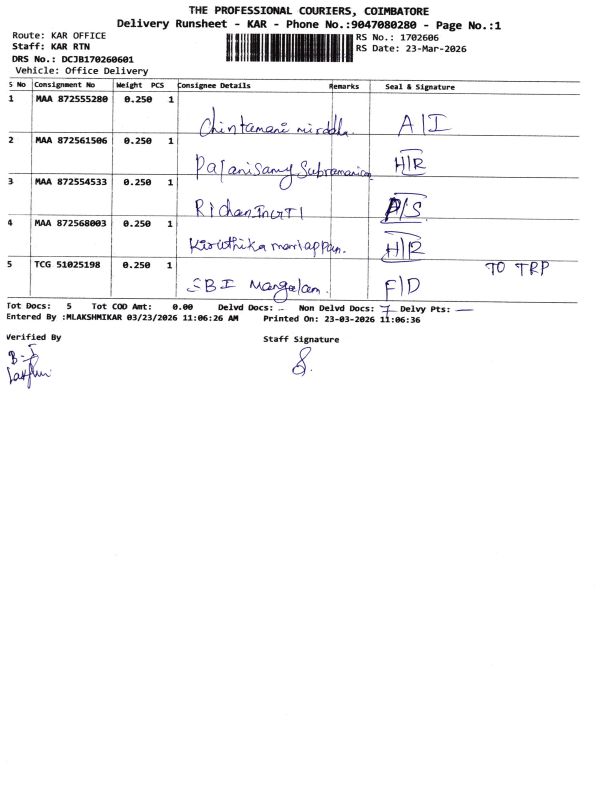 THE PROFESSIONAL COURIERS, COIMBATORE
Delivery Runsheet - KAR - Phone No.:9047080280 - Page No.:1
Route: KAR OFFICE RS No.: 1702606
Staff: KAR RTN RS Date: 23-Mar-2026
DRS No.: DCJB170260601
Vehicle: Office Delivery
S No Consignment No Weight PCS Consignee Details Remarks Seal & Signature
1 MAA 872555280 0.250 1
Chintamani A/I
2 MAA 872561506 0.250 1
Palanisamy Subramaniam H/R
3 MAA 872554533 0.250 1
Richan A/S
4 MAA 872568003 0.250 1
Kiruthika mariappan. H/R
5 TCG 51025198 0.250 1 TO TRP
SBI Mangalam. F/D
Tot Docs: 5 Tot COD Amt: 0.00 Delvd Docs: Non Delvd Docs: Delvy Pts: —
Entered By :MLAKSHMIKAR 03/23/2026 11:06:26 AM Printed On: 23-03-2026 11:06:36
Verified By Staff Signature